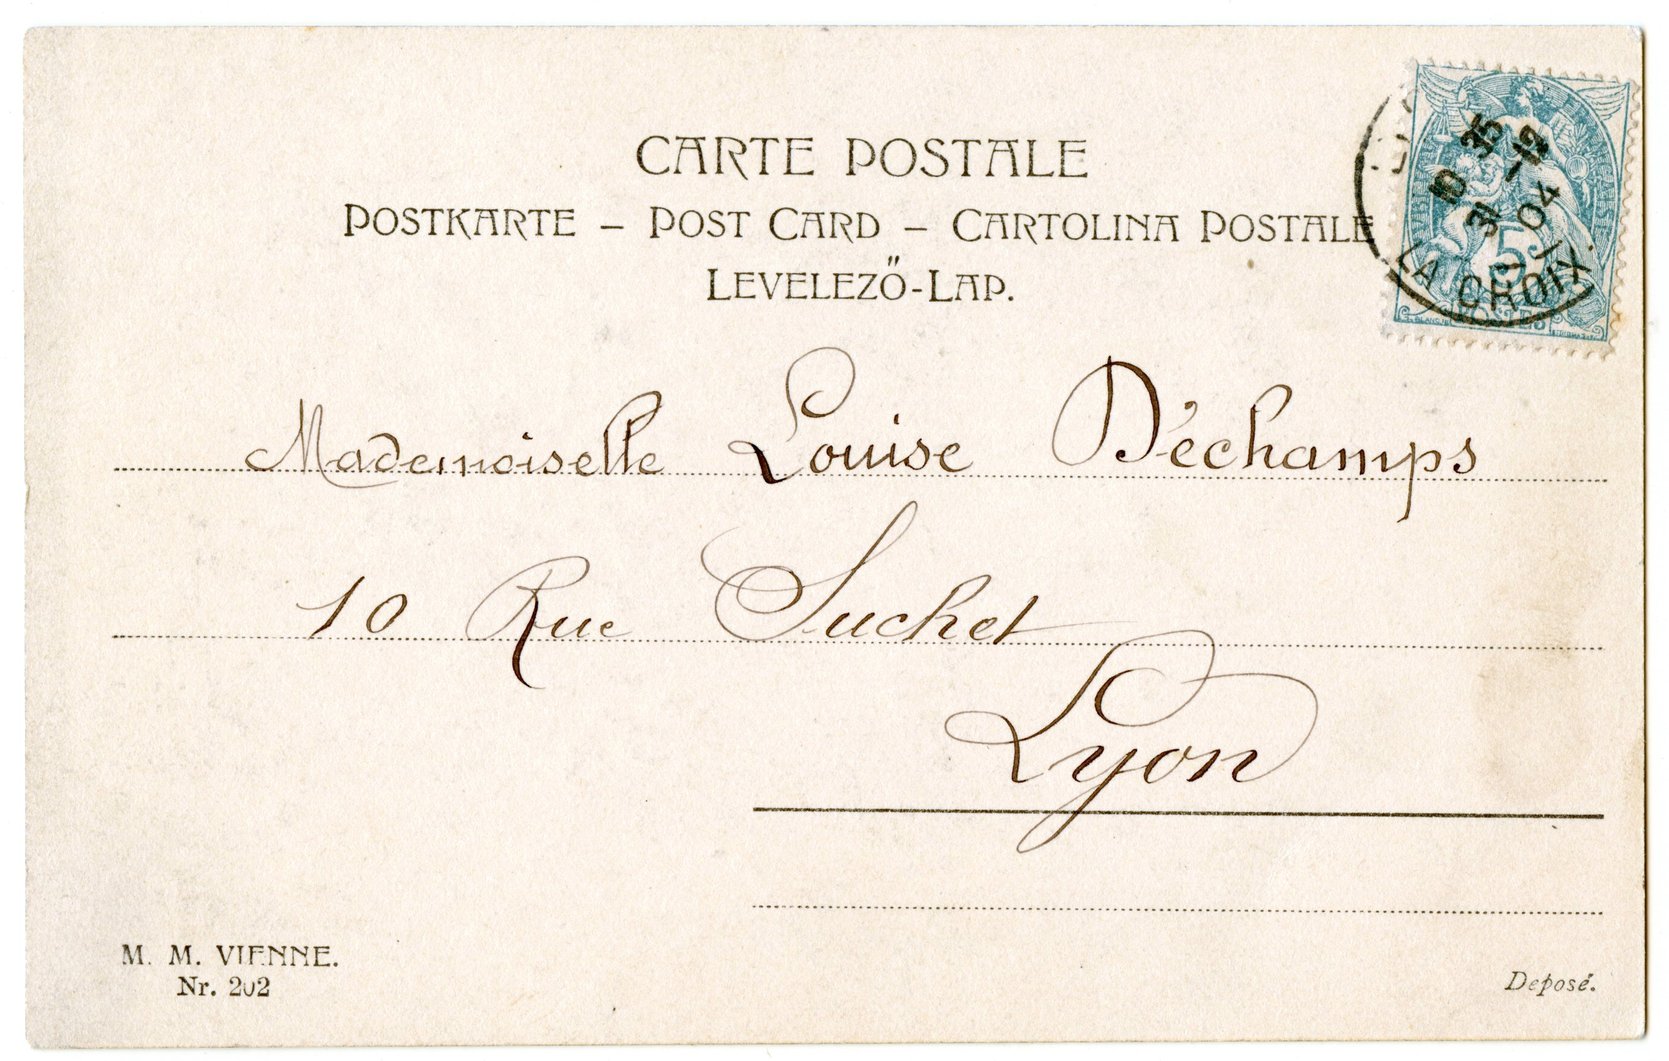 CARTE POSTALE
POSTKARTE – POST CARD – CARTOLINA POSTALE
LEVELEZŐ-LAP.
10 35
31 -12
04
LA CROIX
5
POSTES
Mademoiselle Louise Déchamps
10 Rue Suchet
Lyon
M. M. VIENNE.
Nr. 202
Deposé.